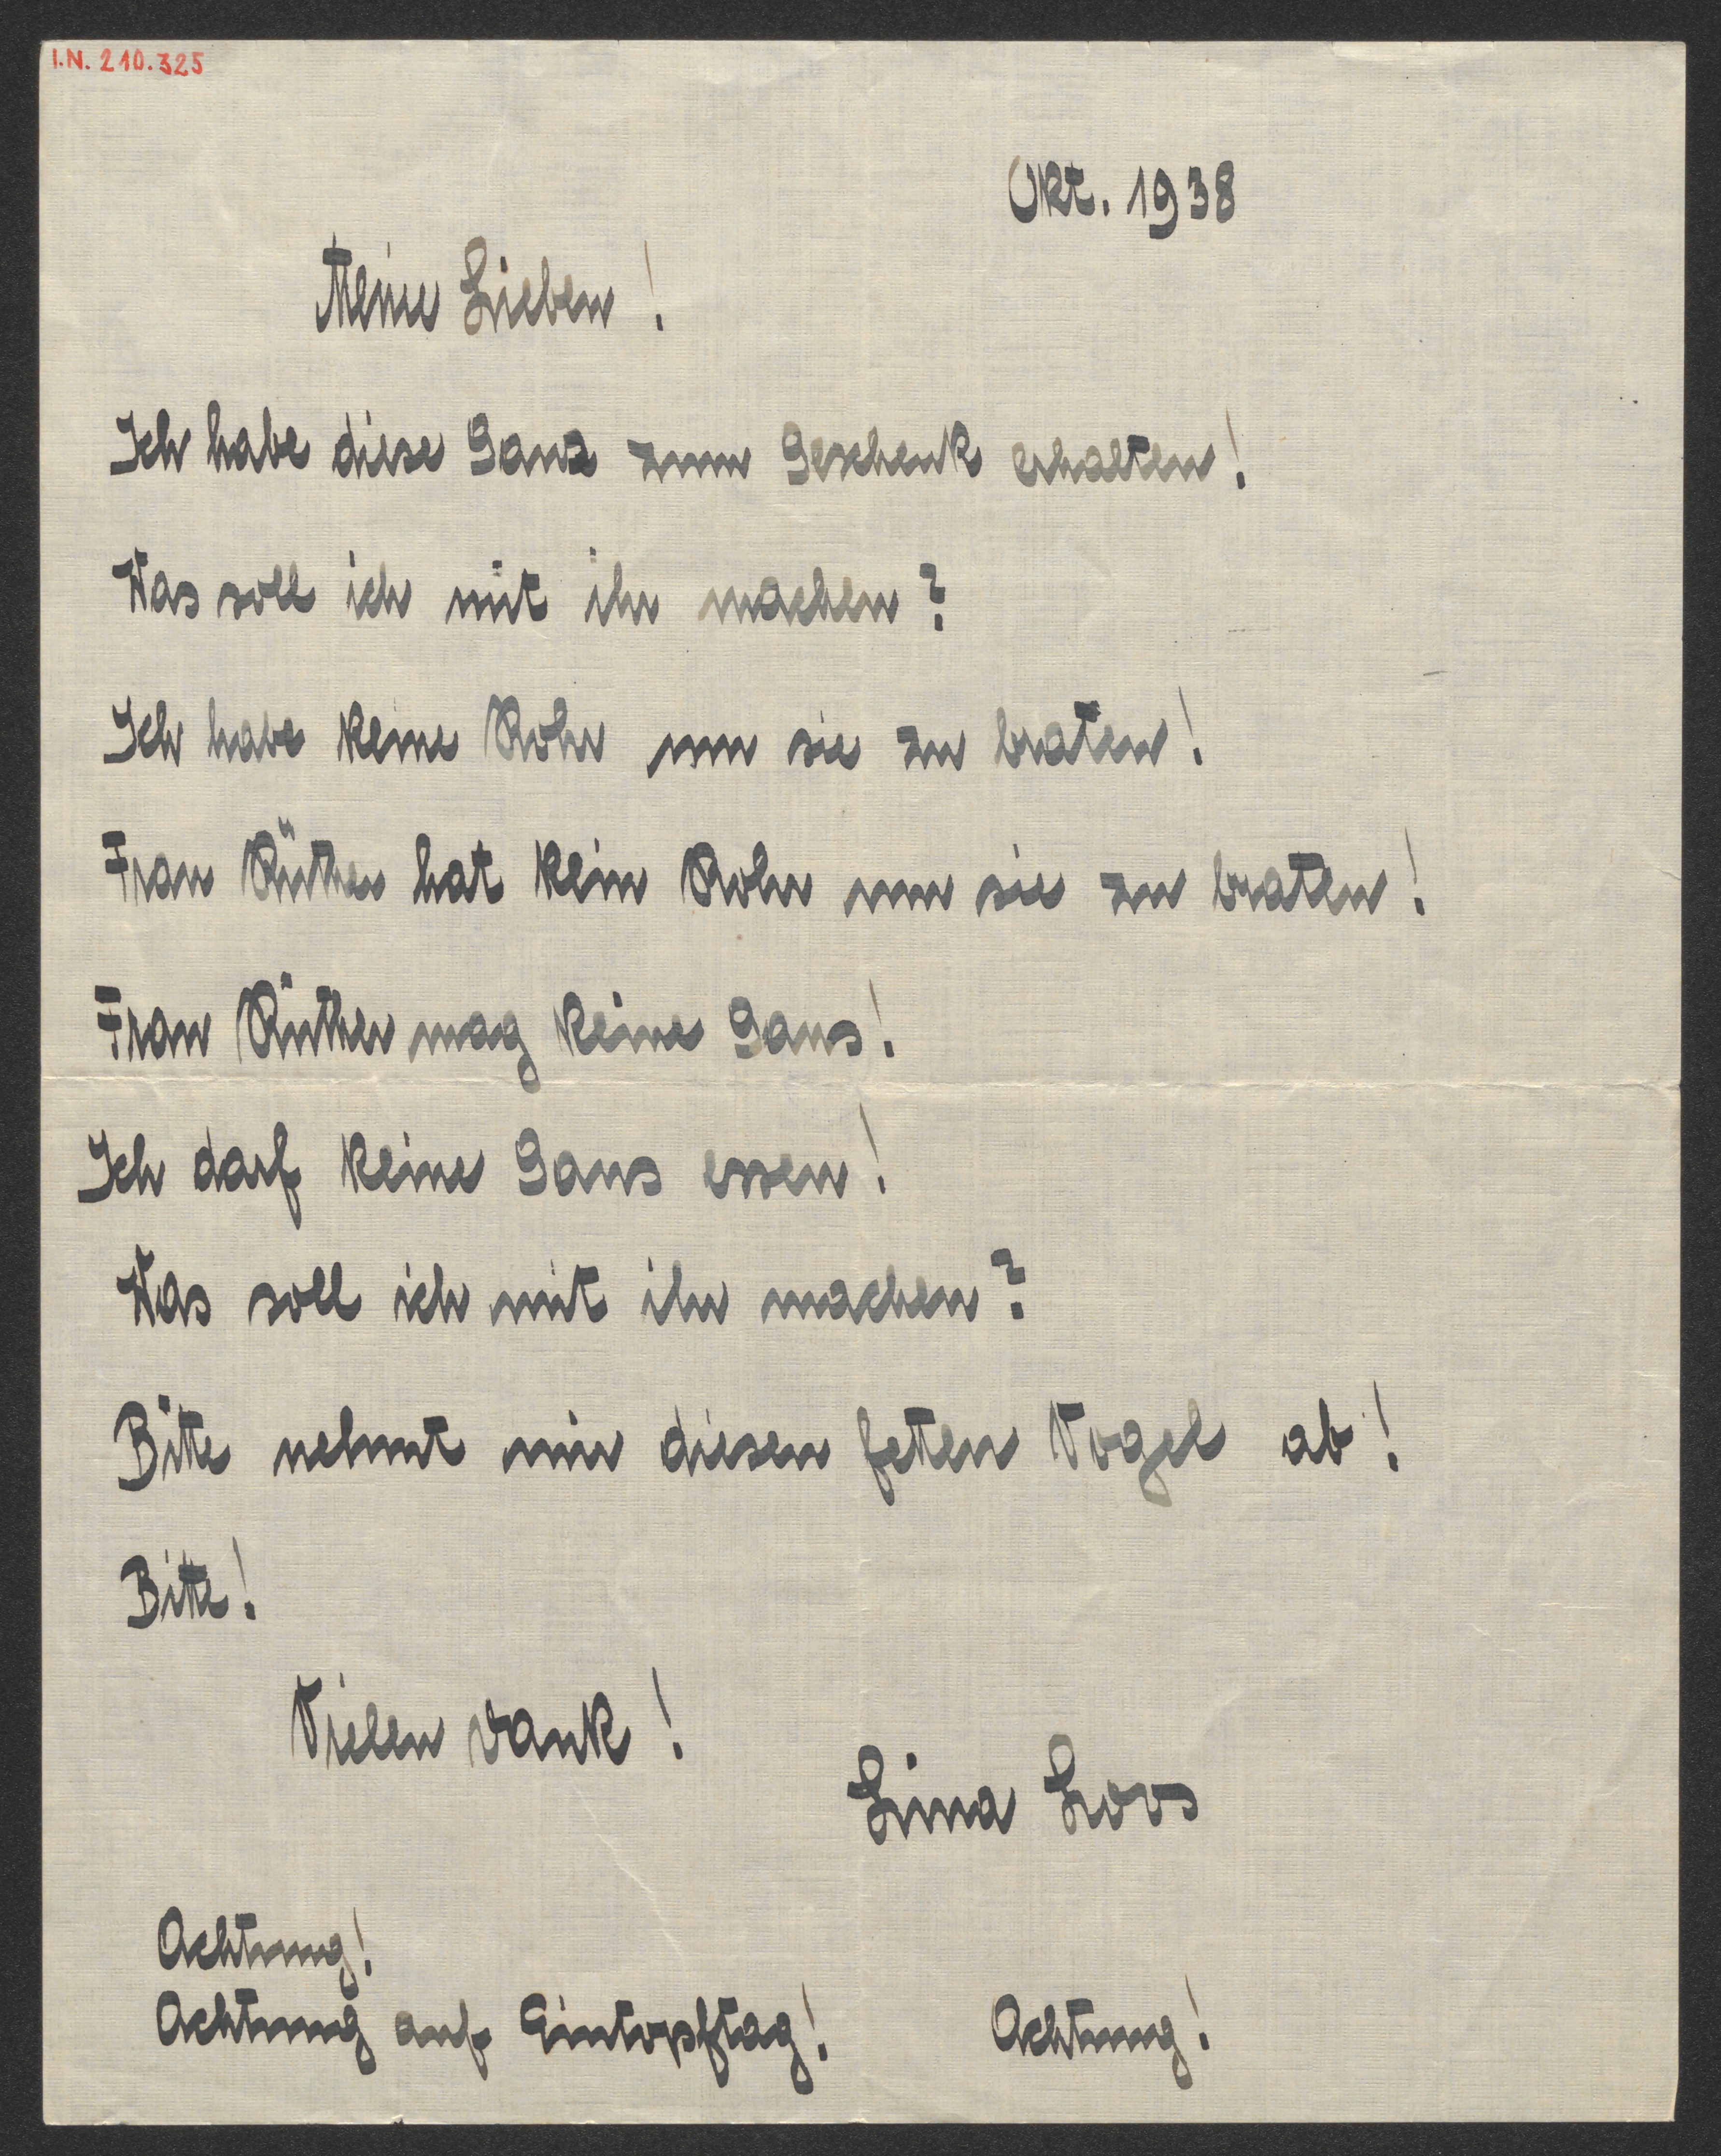 I.N. 210.325
Okt. 1938
Meine Lieben!
Ich habe diese Gans zum Geschenk erhalten!
Was soll ich mit ihr machen?
Ich habe keine Rohr um sie zu braten!
Frau Rüther hat kein Rohr um sie zu braten!
Frau Rüther mag keine Gans!
Ich darf keine Gans essen!
Was soll ich mit ihr machen?
Bitte nehmt mir diesen feten Vogel ab!
Bitte!
Vielen Dank!
Lina Loos
Achtung!
Achtung auf Eintopftag! Achtung!